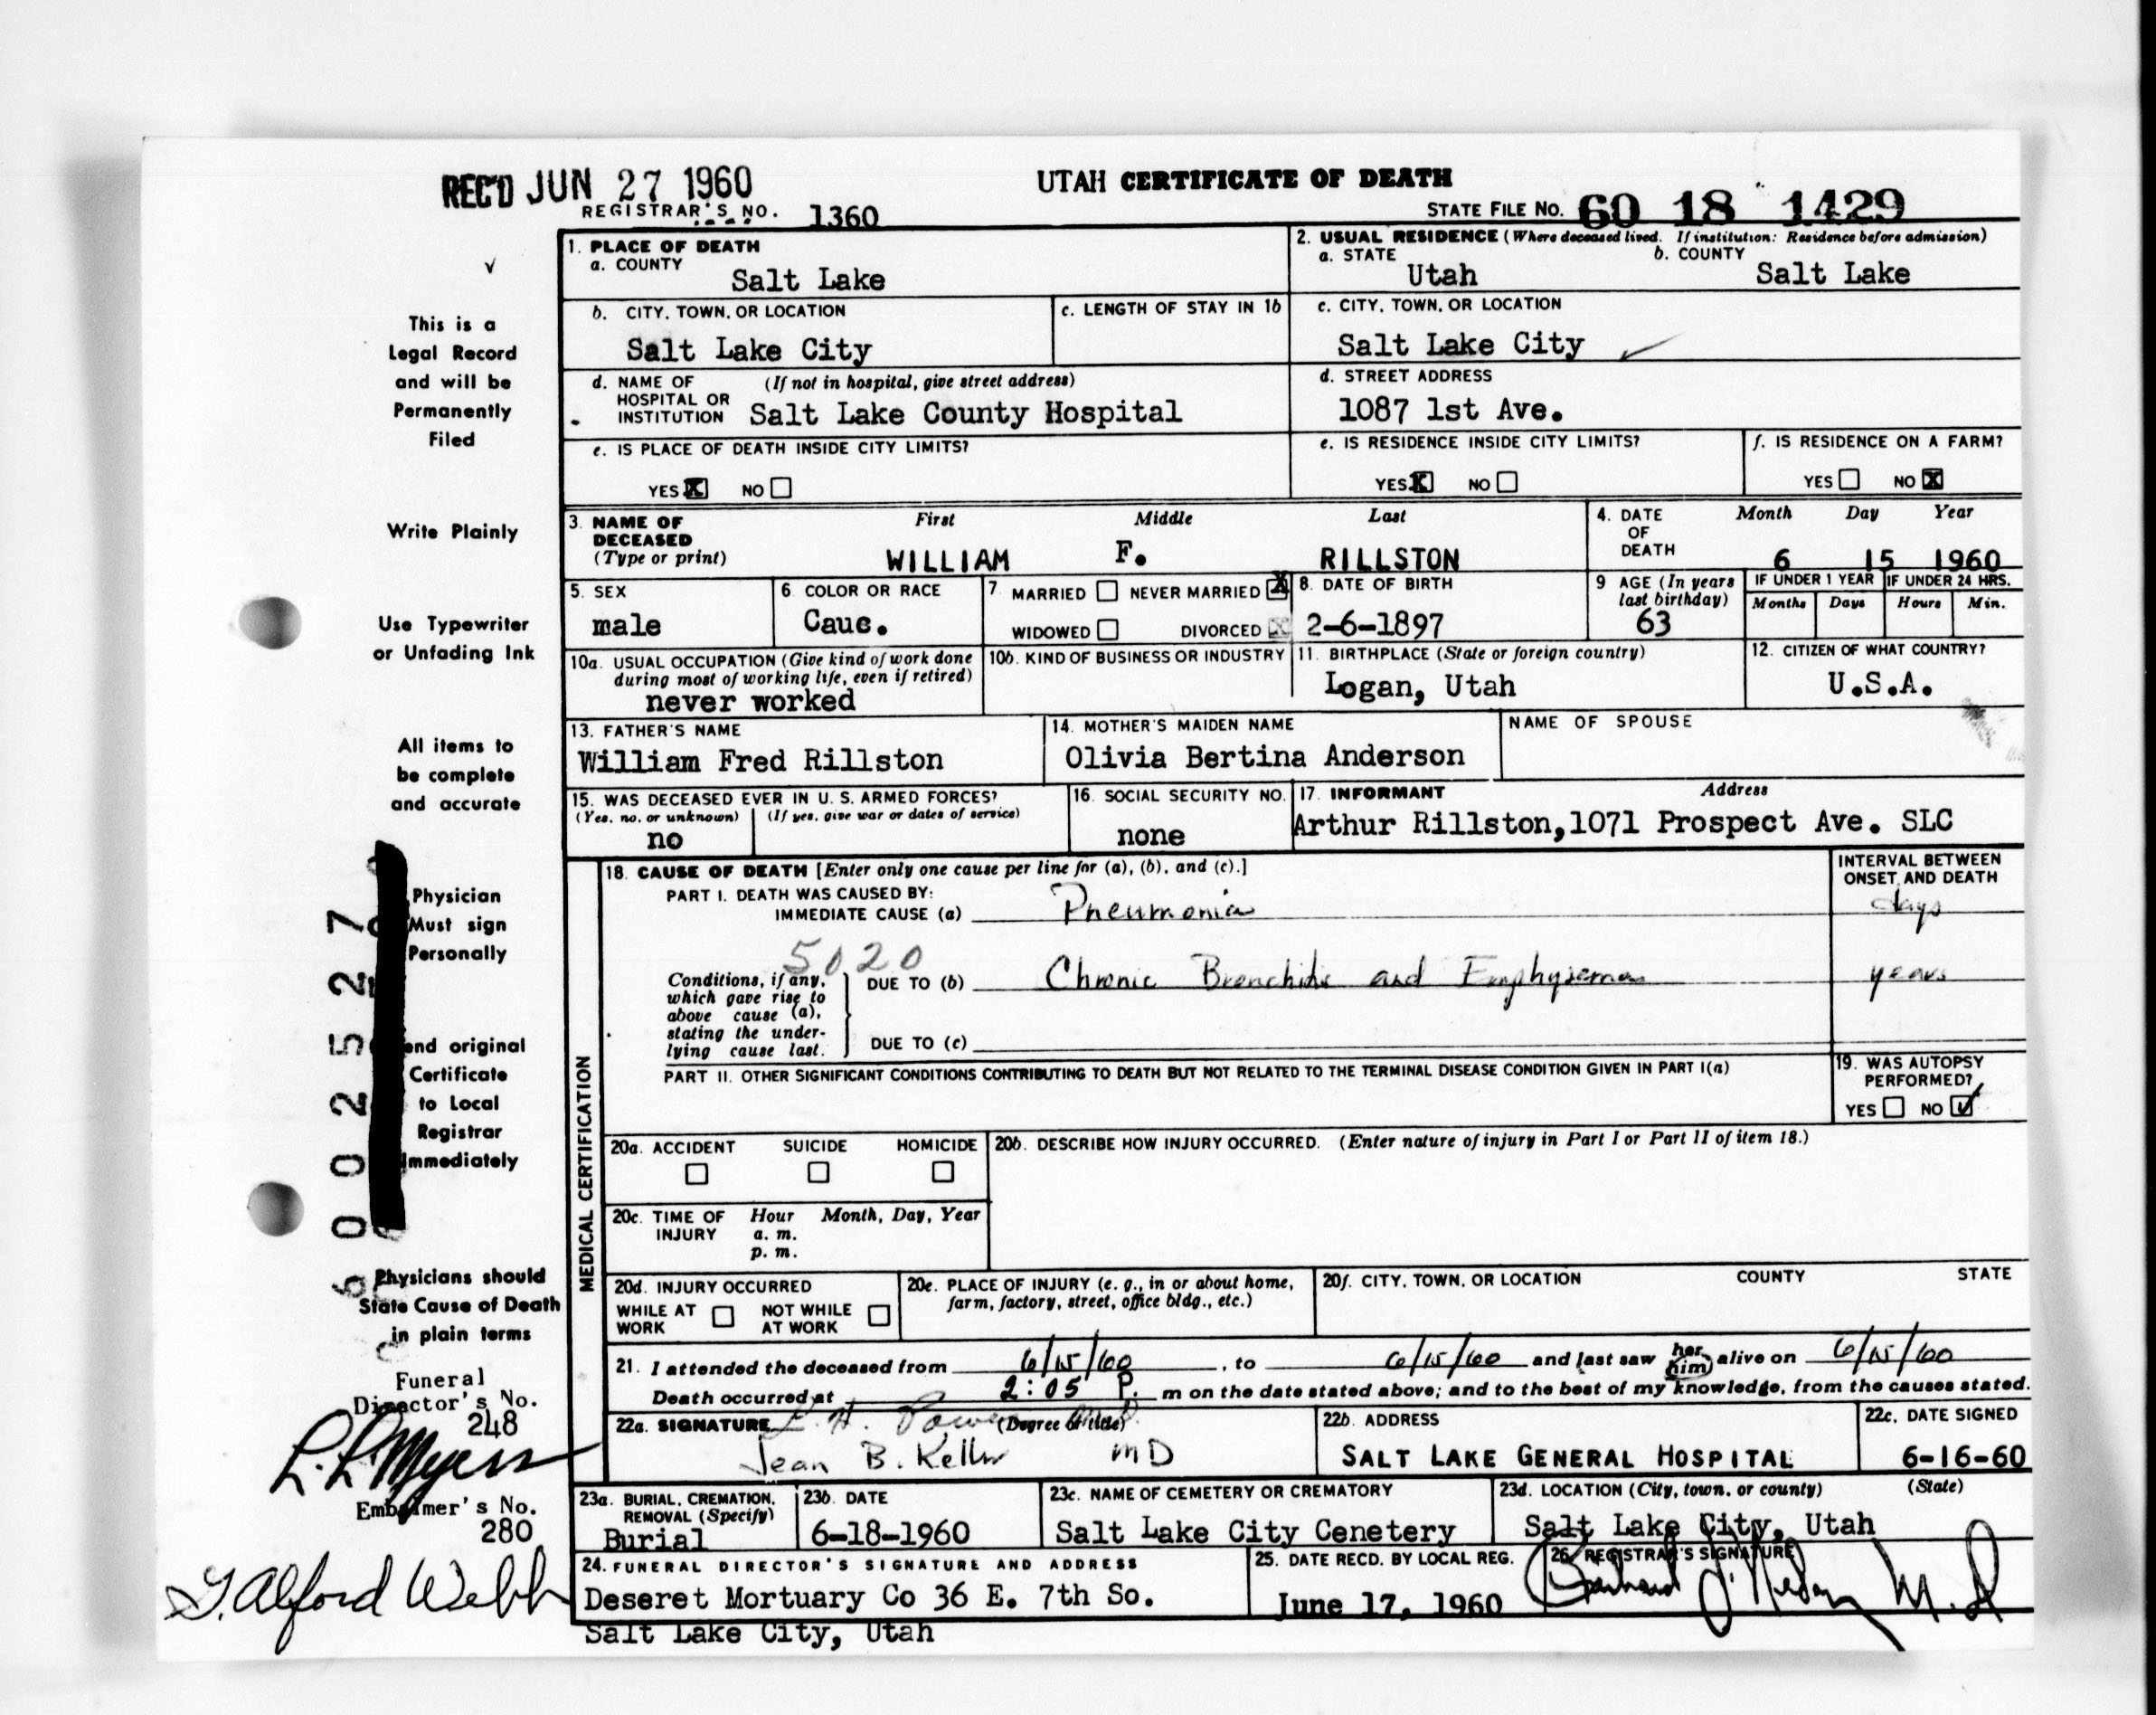 REC'D JUN 27 1960
UTAH CERTIFICATE OF DEATH
REGISTRAR'S NO. 1360
STATE FILE NO. 60 18 1429
This is a
Legal Record
and will be
Permanently
Filed
Write Plainly
Use Typewriter
or Unfading Ink
All items to
be complete
and accurate
Physician
Must sign
Personally
end original
Certificate
to Local
Registrar
Immediately
Physicians should
State Cause of Death
in plain terms
6 0 0 2 5 2 7
Funeral
Director's No.
248
L. L. Myers
Embalmer's No.
280
G. Alford Webb
1. PLACE OF DEATH
a. COUNTY
Salt Lake
2. USUAL RESIDENCE (Where deceased lived. If institution: Residence before admission)
a. STATE Utah
b. COUNTY Salt Lake
b. CITY, TOWN, OR LOCATION
Salt Lake City
c. LENGTH OF STAY IN 1b
c. CITY, TOWN, OR LOCATION
Salt Lake City
d. NAME OF HOSPITAL OR INSTITUTION (If not in hospital, give street address)
Salt Lake County Hospital
d. STREET ADDRESS
1087 1st Ave.
e. IS PLACE OF DEATH INSIDE CITY LIMITS?
YES X NO
e. IS RESIDENCE INSIDE CITY LIMITS?
YES X NO
f. IS RESIDENCE ON A FARM?
YES NO X
3. NAME OF DECEASED (Type or print)
First Middle Last
WILLIAM F. RILLSTON
4. DATE OF DEATH
Month Day Year
6 15 1960
5. SEX
male
6. COLOR OR RACE
Cauc.
7 MARRIED NEVER MARRIED X
WIDOWED DIVORCED
8. DATE OF BIRTH
2-6-1897
9 AGE (In years last birthday)
63
IF UNDER 1 YEAR
Months Days
IF UNDER 24 HRS.
Hours Min.
10a. USUAL OCCUPATION (Give kind of work done during most of working life, even if retired)
never worked
10b. KIND OF BUSINESS OR INDUSTRY
11. BIRTHPLACE (State or foreign country)
Logan, Utah
12. CITIZEN OF WHAT COUNTRY?
U.S.A.
13. FATHER'S NAME
William Fred Rillston
14. MOTHER'S MAIDEN NAME
Olivia Bertina Anderson
NAME OF SPOUSE
15. WAS DECEASED EVER IN U. S. ARMED FORCES?
(Yes, no, or unknown) (If yes, give war or dates of service)
no
16. SOCIAL SECURITY NO.
none
17. INFORMANT Address
Arthur Rillston,1071 Prospect Ave. SLC
MEDICAL CERTIFICATION
18. CAUSE OF DEATH [Enter only one cause per line for (a), (b), and (c).]
INTERVAL BETWEEN ONSET AND DEATH
PART I. DEATH WAS CAUSED BY:
IMMEDIATE CAUSE (a) Pneumonia days
5020
Conditions, if any, which gave rise to above cause (a), stating the underlying cause last.
DUE TO (b) Chronic Bronchitis and Emphysema years
DUE TO (c)
PART II. OTHER SIGNIFICANT CONDITIONS CONTRIBUTING TO DEATH BUT NOT RELATED TO THE TERMINAL DISEASE CONDITION GIVEN IN PART I(a)
19. WAS AUTOPSY PERFORMED?
YES NO ✓
20a. ACCIDENT SUICIDE HOMICIDE
20b. DESCRIBE HOW INJURY OCCURRED. (Enter nature of injury in Part I or Part II of item 18.)
20c. TIME OF INJURY Hour Month, Day, Year
a. m.
p. m.
20d. INJURY OCCURRED
WHILE AT WORK NOT WHILE AT WORK
20e. PLACE OF INJURY (e. g., in or about home, farm, factory, street, office bldg., etc.)
20f. CITY, TOWN, OR LOCATION COUNTY STATE
21. I attended the deceased from 6/15/60, to 6/15/60 and last saw her him alive on 6/15/60
Death occurred at 2:05 P. m on the date stated above; and to the best of my knowledge, from the causes stated.
22a. SIGNATURE (Degree or title)
Jean B. Keller MD
22b. ADDRESS
SALT LAKE GENERAL HOSPITAL
22c. DATE SIGNED
6-16-60
23a. BURIAL, CREMATION, REMOVAL (Specify)
Burial
23b. DATE
6-18-1960
23c. NAME OF CEMETERY OR CREMATORY
Salt Lake City Cenetery
23d. LOCATION (City, town, or county) (State)
Salt Lake City, Utah
24. FUNERAL DIRECTOR'S SIGNATURE AND ADDRESS
Deseret Mortuary Co 36 E. 7th So.
Salt Lake City, Utah
25. DATE RECD. BY LOCAL REG.
June 17, 1960
26. REGISTRAR'S SIGNATURE
M.D